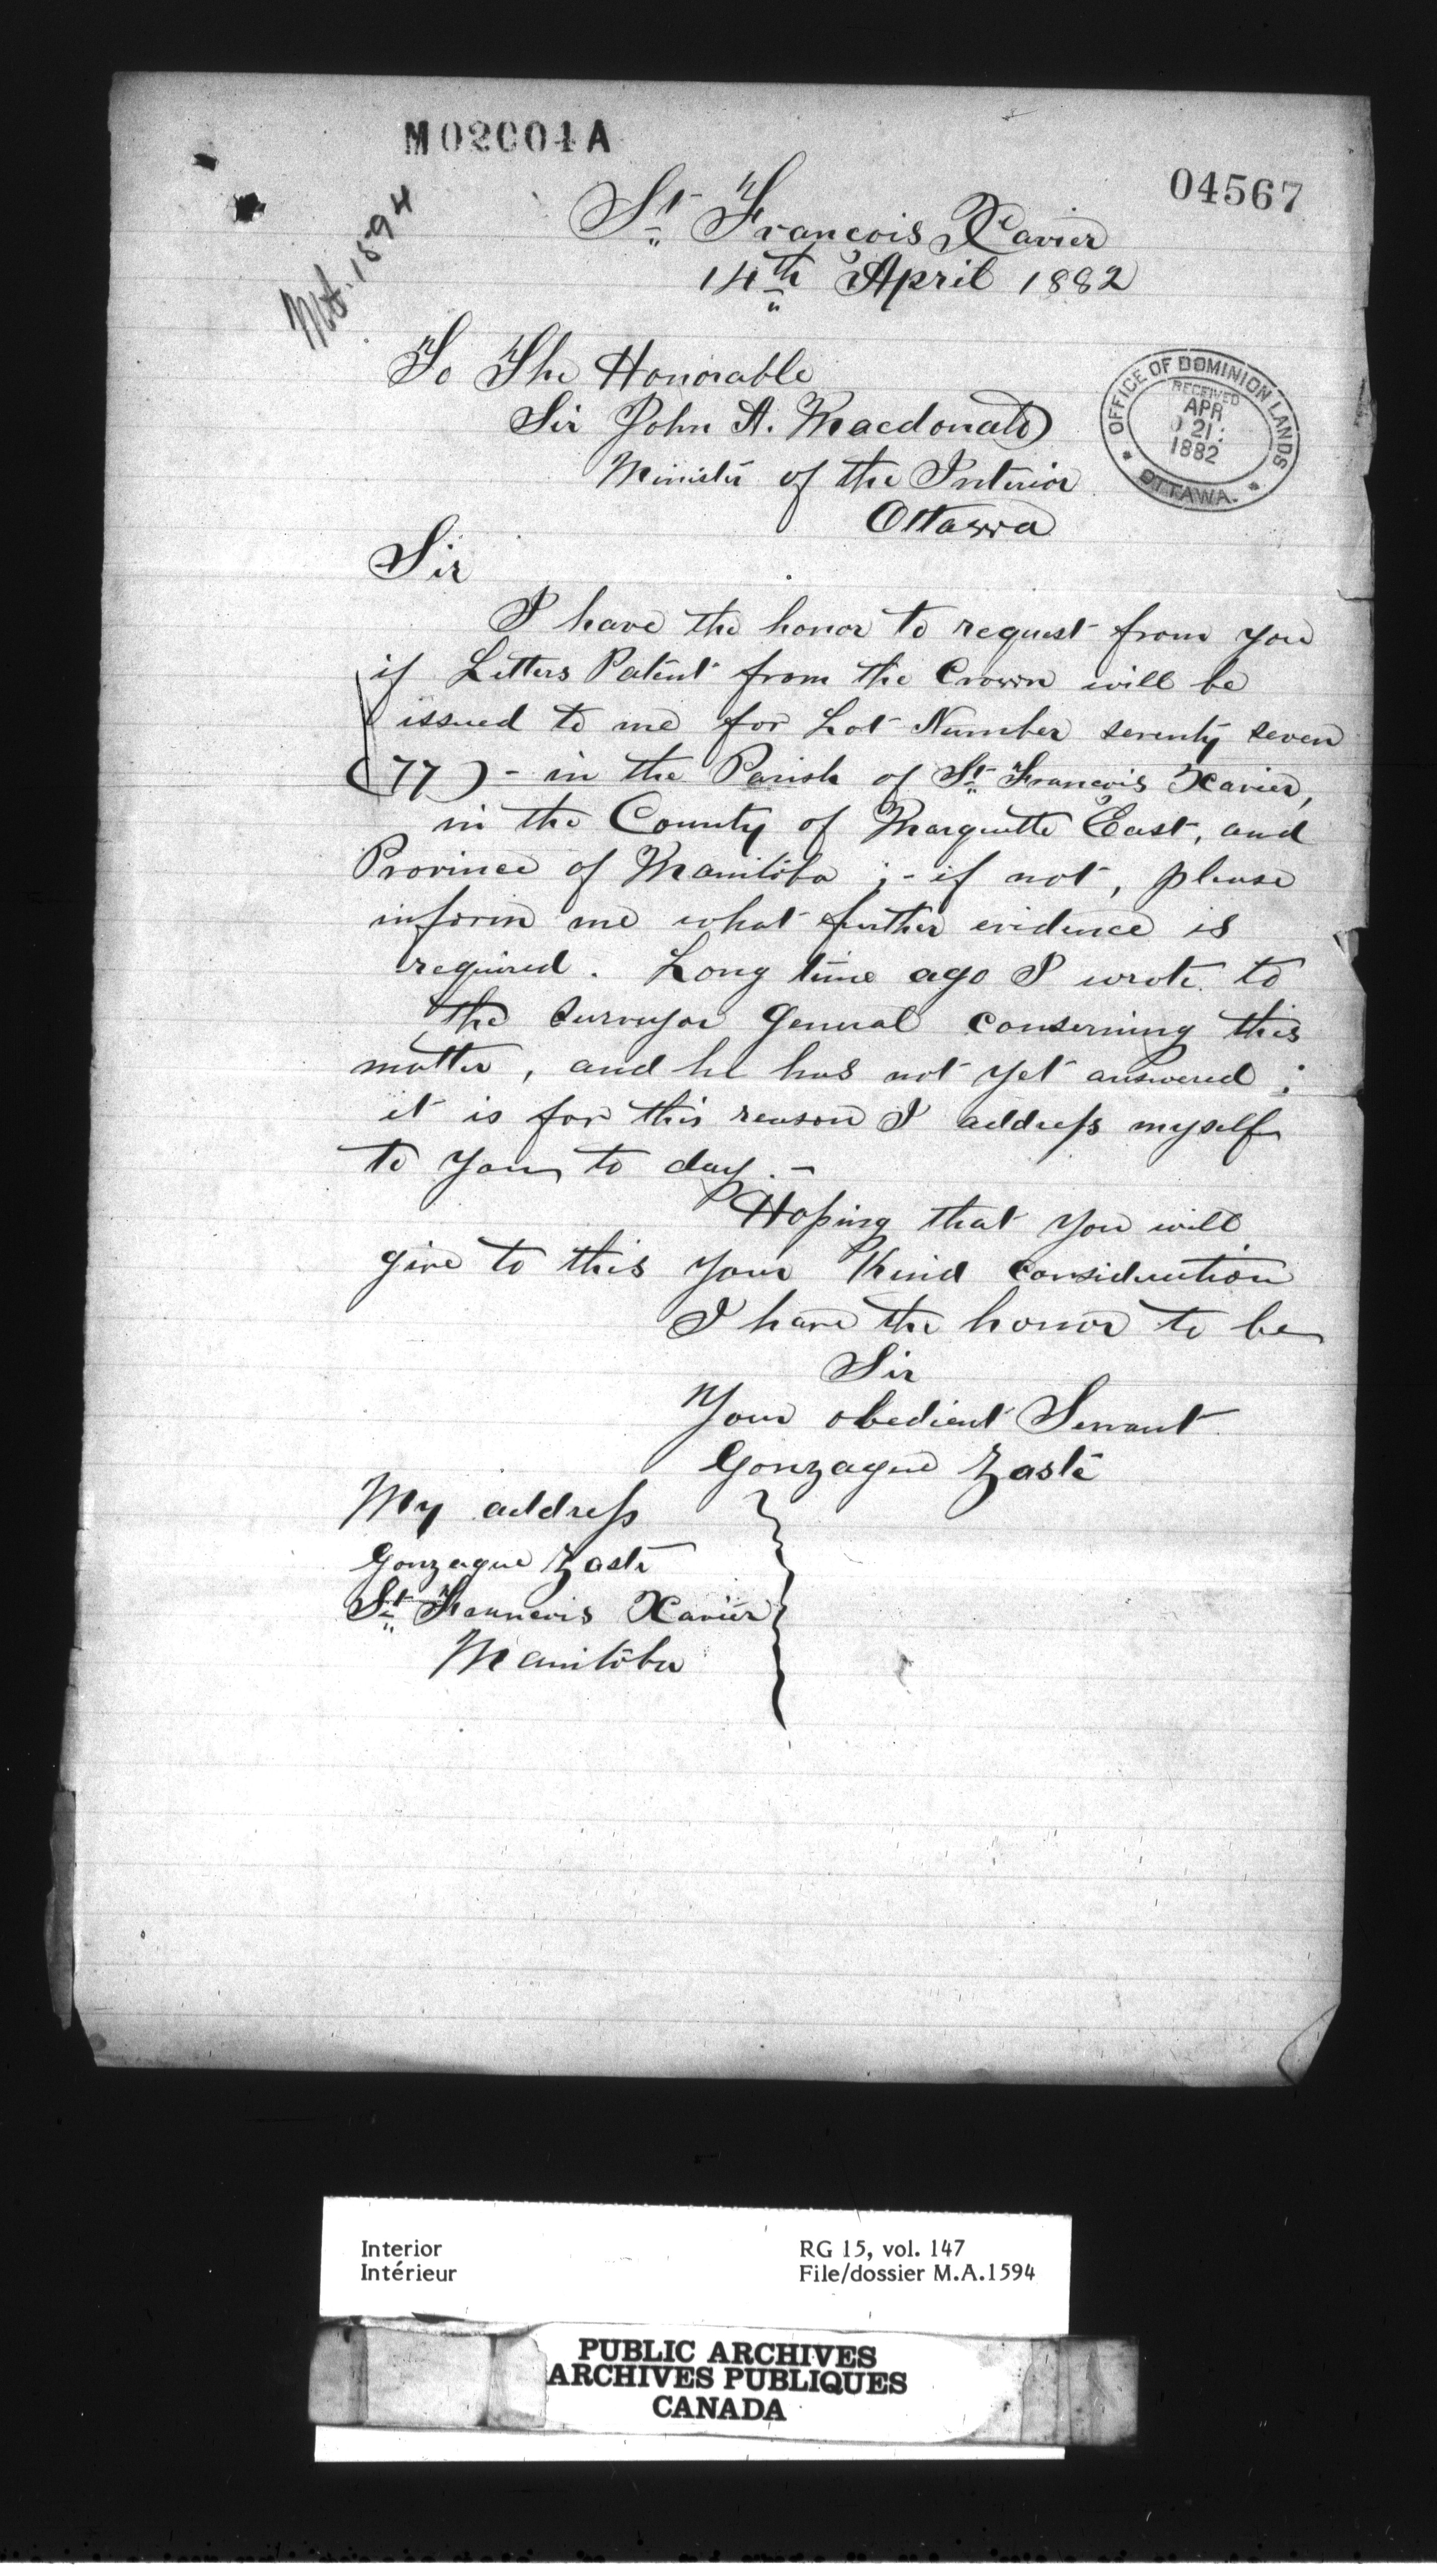 M02004A
04567
MA. 1594
St Francois Xavier
14th April 1882
To The Honorable
Sir John A. Macdonald
Minister of the Interior
Ottawa
OFFICE OF DOMINION LANDS
RECEIVED
APR
21
1882
OTTAWA.
Sir
I have the honor to request from you
if Letters Patent from the Crown will be
issued to me for Lot Number seventy seven
(77) - in the Parish of St Francois Xavier,
in the County of Marquette East, and
Province of Manitoba ; - if not, please
inform me what further evidence is
required. Long time ago I wrote to
the Surveyor General conserning this
matter, and he has not yet answered ;
it is for this reason I address myself
to you to day. -
Hoping that you will
give to this your Kind consideration
I have the honor to be
Sir
Your obedient Servant
Gonzague Zasté
My address
Gonzague Zasté
St Francois Xavier
Manitoba
Interior
Intérieur
RG 15, vol. 147
File/dossier M.A.1594
PUBLIC ARCHIVES
ARCHIVES PUBLIQUES
CANADA